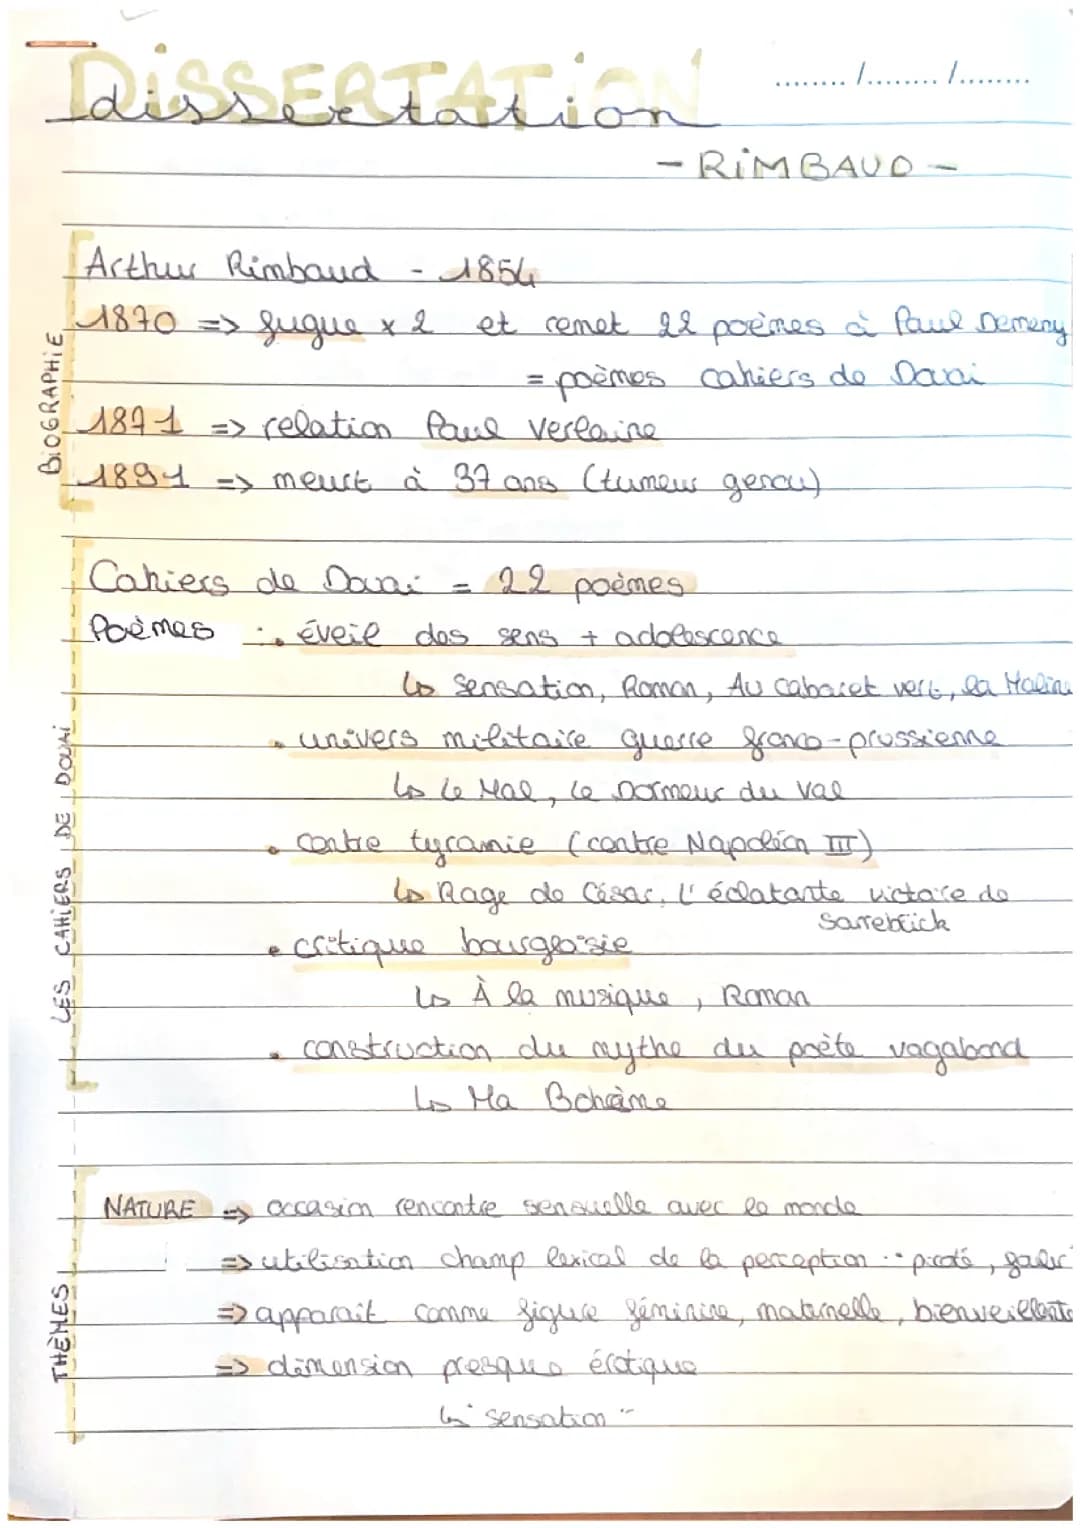 DiSSERTATiON
dissertation
......../......../........
- RiMBAUD -
BiOGRAPHiE
Arthur Rimbaud - 1854
1870 => fugue x 2 et remet 22 poèmes à Paul Demeny
= poèmes cahiers de Douai
1871 => relation Paul Verlaine
1891 => meurt à 37 ans (tumeur genou)
LES CAHiERS DE DOUAi
Cahiers de Douai = 22 poèmes
Poèmes : • éveil des sens + adolescence
↳ Sensation, Roman, Au cabaret vert, la Maline
• univers militaire guerre franco-prussienne
↳ Le Mal, Le Dormeur du Val
• contre tyrannie (contre Napoléon III)
↳ Rage de César, L'éclatante victoire de
Sarrebrück
• critique bourgeoisie
↳ À la musique, Roman
• construction du mythe du poète vagabond
↳ Ma Bohème
THÈMES
NATURE => occasion rencontre sensuelle avec le monde
=> utilisation champ lexical de la perception : picoté,
=> apparait comme figure féminine, maternelle, bienveillante
=> dimension presque érotique
↳ "sensation"